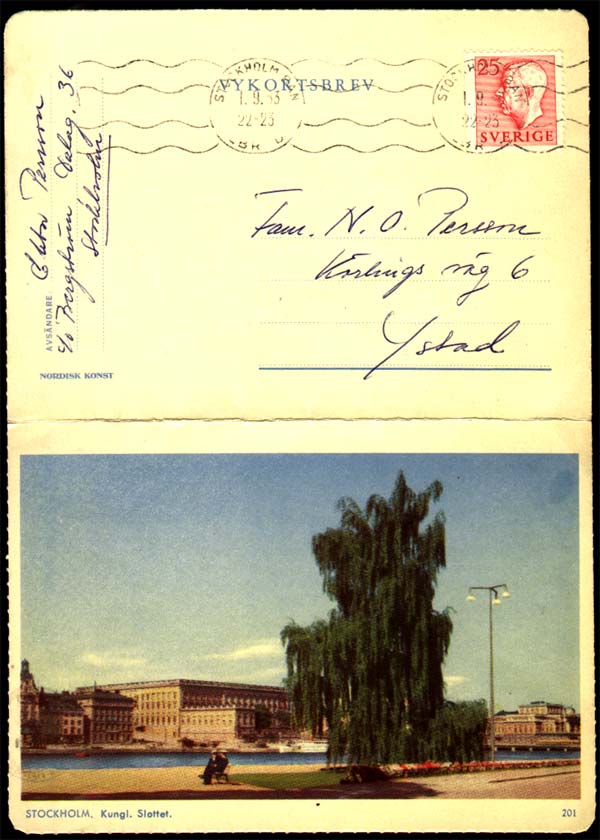 VYKORTSBREV
STOCKHOLM BAN
1.9.53
22-23
LBR D
STOCKHOLM BAN
1.9.
22-23
LBR
25
SVERIGE
Fam. N. O. Persson
Körlings väg 6
Ystad
AVSÄNDARE
Persson
c/o Bergström Dalag. 36
Stockholm
NORDISK KONST
STOCKHOLM. Kungl. Slottet.
201